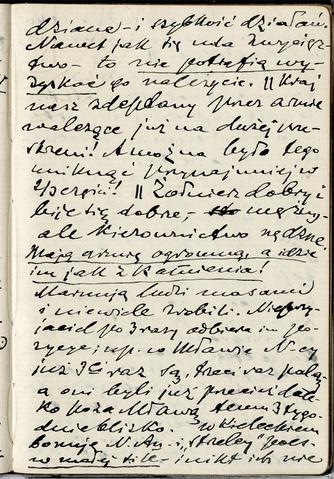 dziane – i szybkość działań.
Nawet jak się uda zwycięz-
two – to nie potrafią wy-
zyskać go należycie. || Kraj
nasz zdeptany przez armie
walczące już na dużej prze-
strzeni! A można było tego
uniknąć przynajmniej w
2/3 części! || Żołnierz dobry i
bije się dobrze, – mężny,
ale kierownictwo nędzne.
Mają armię ogromną, a idzie
im jak z kamienia!
Marnują ludzi masami
i niewiele zrobili. Nieprzy-
jaciel po 3 razy odbiera im po-
zycye, np. w Mławie N-cy
już 3ci raz są, trzeci raz
a oni byli już przecież dale-
ko poza Mławą, temu 3 tygo-
dnie blisko. W Kieleckiem
N. An. i „Strzelcy"
w małej sile – i nikt ich nie